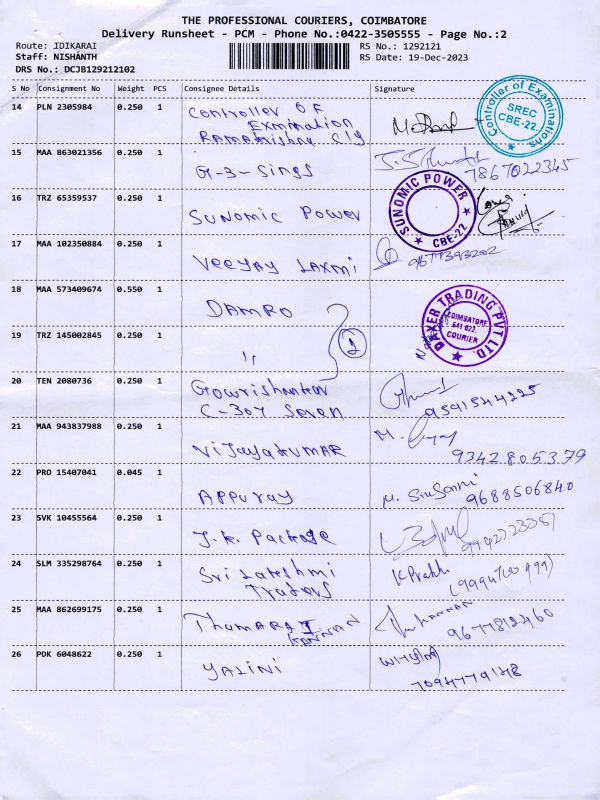 THE PROFESSIONAL COURIERS, COIMBATORE
Delivery Runsheet - PCM - Phone No.:0422-3505555 - Page No.:2
Route: IDIKARAI RS No.: 1292121
Staff: NISHANTH RS Date: 19-Dec-2023
DRS No.: DCJB129212102
S No Consignment No Weight PCS Consignee Details Signature
14 PLN 2305984 0.250 1 Controller OF
Exmination
Controller of Examinations
SREC
CBE-22.
15 MAA 863021356 0.250 1 G-3-Sings
7867022345
16 TRZ 65359537 0.250 1 Sunomic Power
SUNOMIC POWER
CBE-22
17 MAA 102350884 0.250 1 Veejay Laxmi
9677393202
18 MAA 573409674 0.550 1 DAMRO
2
DAXER TRADING PVT LTD.
COIMBATORE
641 022.
COURIER
19 TRZ 145002845 0.250 1 "
20 TEN 2080736 0.250 1 Gowrishankar
C-307 Seven
9591544225
21 MAA 943837988 0.250 1 VIJAYAKUMAR
M.
9342805379
22 PRO 15407041 0.045 1 APPURAY
9688506840
23 SVK 10455564 0.250 1 J.K. Package
24 SLM 335298764 0.250 1 Sri Lakshmi
Traders
K Prabhu
25 MAA 862699175 0.250 1 Thamarai
KANNAN
KANNAN
9677812460
26 PDK 6048622 0.250 1 YALINI
7094779148